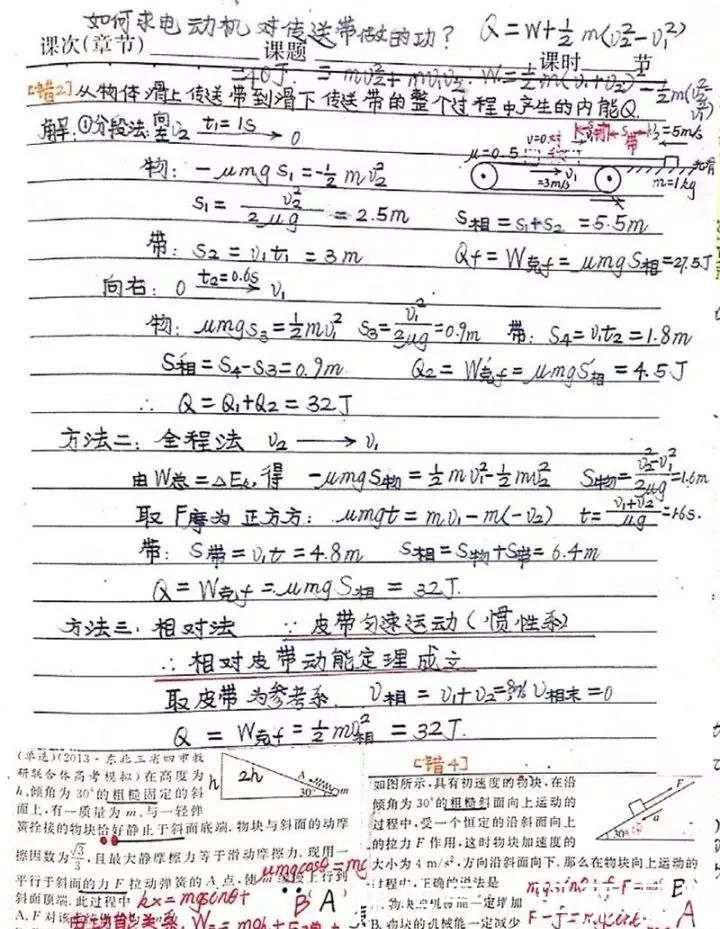 如何求电动机对传送带做的功? Q=W+½m(v₂²-v₁²)
课次(章节) 课题 课时 节
=40J. = mv₂²+mv₁v₂. W=½m(v₁+v₂)²-½m(v₂²-v₁²)
[错2] 从物体滑上传送带到滑下传送带的整个过程中产生的内能Q.
解:①分段法:向左v₂ t₁=1s→ 0
μ=0.5 v=0 S物 S带 v₂=5m/s
v₁=3m/s m=1kg 光滑
物: -μmgs₁=-½mv₂²
s₁=v₂²/2μg=2.5m S相=s₁+s₂=5.5m
带: s₂=v₁t₁=3m Qf=W克f=μmgS相=27.5J
向右: 0 t₂=0.6s→ v₁
物: μmgs₃=½mv₁² s₃=v₁²/2μg=0.9m 带: s₄=v₁t₂=1.8m
S相=s₄-s₃=0.9m Q₂=W克f=μmgS相=4.5J
∴ Q=Q₁+Q₂=32J
方法二: 全程法 v₂ → v₁
由W总=ΔEₖ,得 -μmgS物=½mv₁²-½mv₂² S物=v₂²-v₁²/2μg=1.6m
取F摩为正方方: μmgt=mv₁-m(-v₂) t=v₁+v₂/μg=1.6s.
带: S带=v₁t=4.8m S相=S物+S带=6.4m
Q=W克f=μmgS相=32J.
方法三. 相对法 ∵皮带匀速运动(惯性系)
∴相对皮带动能定理成立
取皮带为参考系. v相=v₁+v₂=8m/s v相末=0
Q=W克f=½mv相²=32J.
(单选)(2013·东北三省四市教
研联合体高考模拟)在高度为
h、倾角为30°的粗糙固定的斜
面上,有一质量为m、与一轻弹
簧拴接的物块恰好静止于斜面底端.物块与斜面的动摩
擦因数为√3/3,且最大静摩擦力等于滑动摩擦力.现用一
平行于斜面的力F拉动弹簧的A点,使m缓慢上行到
斜面顶端.此过程中
h 2h A 30° m
μmgcosθ=
kx=mgsinθ+
B A
[错4]
如图所示,具有初速度的物块,在沿
倾角为30°的粗糙斜面向上运动的
过程中,受一个恒定的沿斜面向上
的拉力F作用,这时物块加速度的
大小为4 m/s²,方向沿斜面向下,那么在物块向上运动的
过程中,正确的说法是
物块的机械能一定增加
B.物块的机械能一定减少
F a 30°
B
A